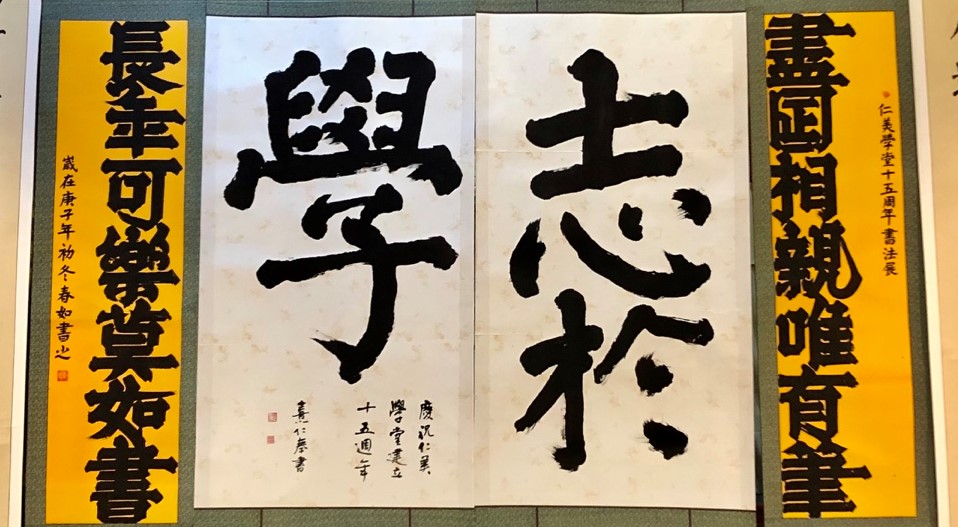 仁美學堂十五周年書法展
盡日相親唯有筆
志於
學
慶祝仁美
學堂建立
十五週年
仁書
長年可樂莫如書
歲在庚子年初冬春如書㞢